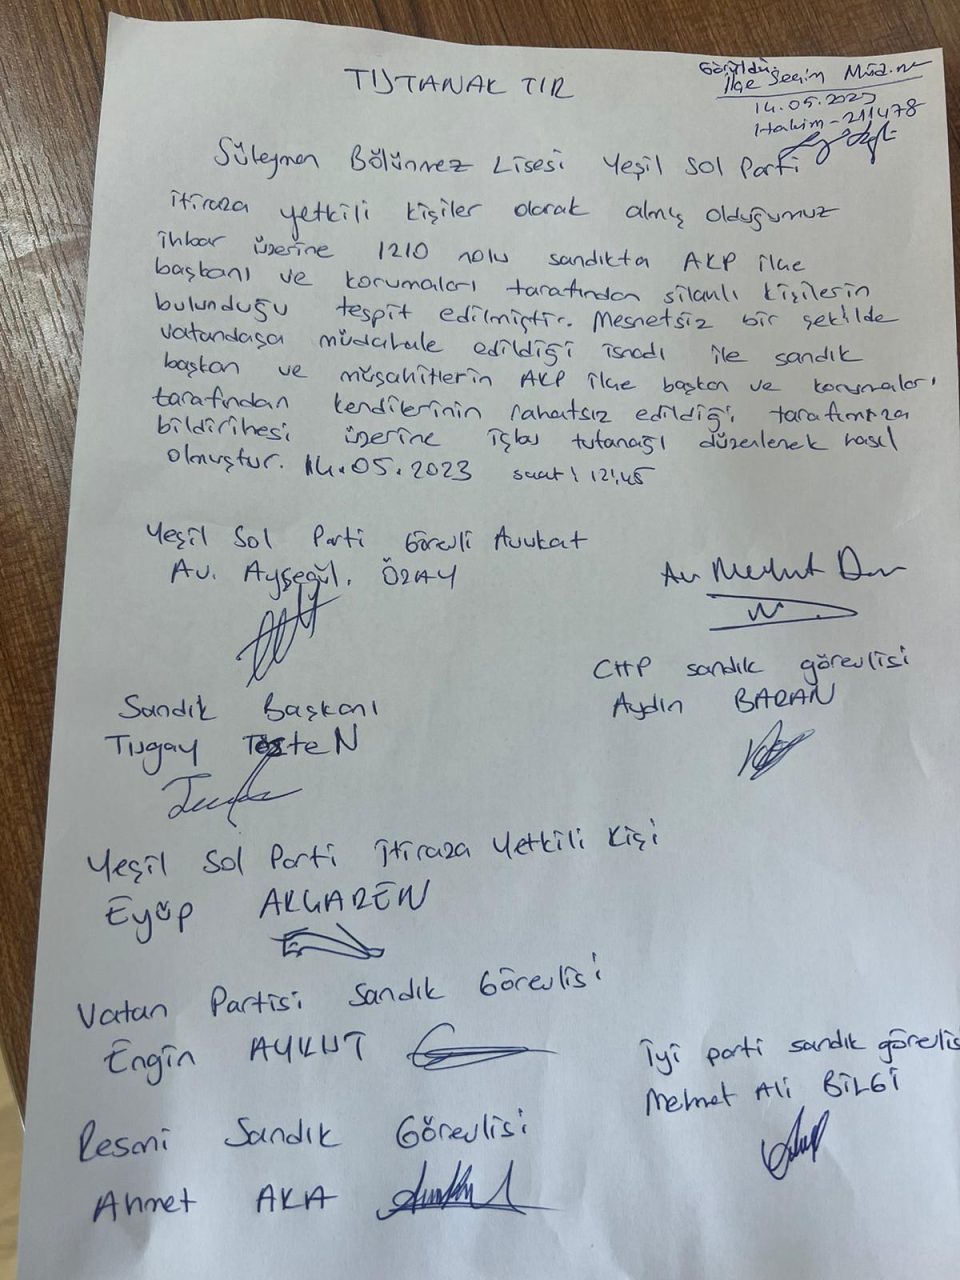 TUTANAK TIR
Görüldü.
İlçe Seçim Müd.
14.05.2023
Hakim - 211478
Süleyman Bölünmez Lisesi Yeşil Sol Parti
itiraza yetkili kişiler olarak almış olduğumuz
ihbar üzerine 1210 nolu sandıkta AKP ilçe
başkanı ve korumaları tarafından silahlı kişilerin
bulunduğu tespit edilmiştir. Mesnetsiz bir şekilde
vatandaşa müdahale edildiği isnadı ile sandık
başkan ve müşahitlerin AKP ilçe başkan ve korumaları
tarafından kendilerinin rahatsız edildiği tarafımıza
bildirilmesi üzerine işbu tutanağı düzenlenek hasıl
olmuştur. 14.05.2023 saat: 12:45
Yeşil Sol Parti Görevli Avukat
Av. Ayşegül. ÖZAY
Av Mevlut
CHP sandık görevlisi
Aydın BARAN
Sandık Başkanı
Tugay
Yeşil Sol Parti İtiraza Yetkili Kişi
Eyüp AKGAREN
Vatan Partisi Sandık Görevlisi
Engin AYKUT
İyi parti sandık görevlis
Mehmet Ali BİLGİ
Resmi Sandık Görevlisi
Ahmet AKA